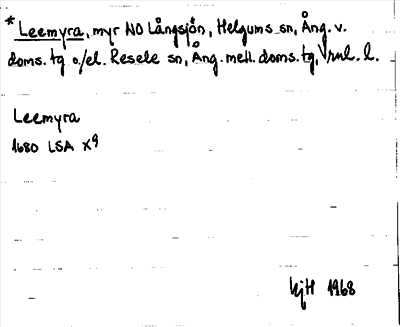 * Leemyra, myr NO Långsjön, Helgums sn, Ång. v.
doms. tg o./el. Resele sn, Ång. mell. doms. tg, Vrnl. l.
Leemyra
1680 LSA X9
hjH 1968